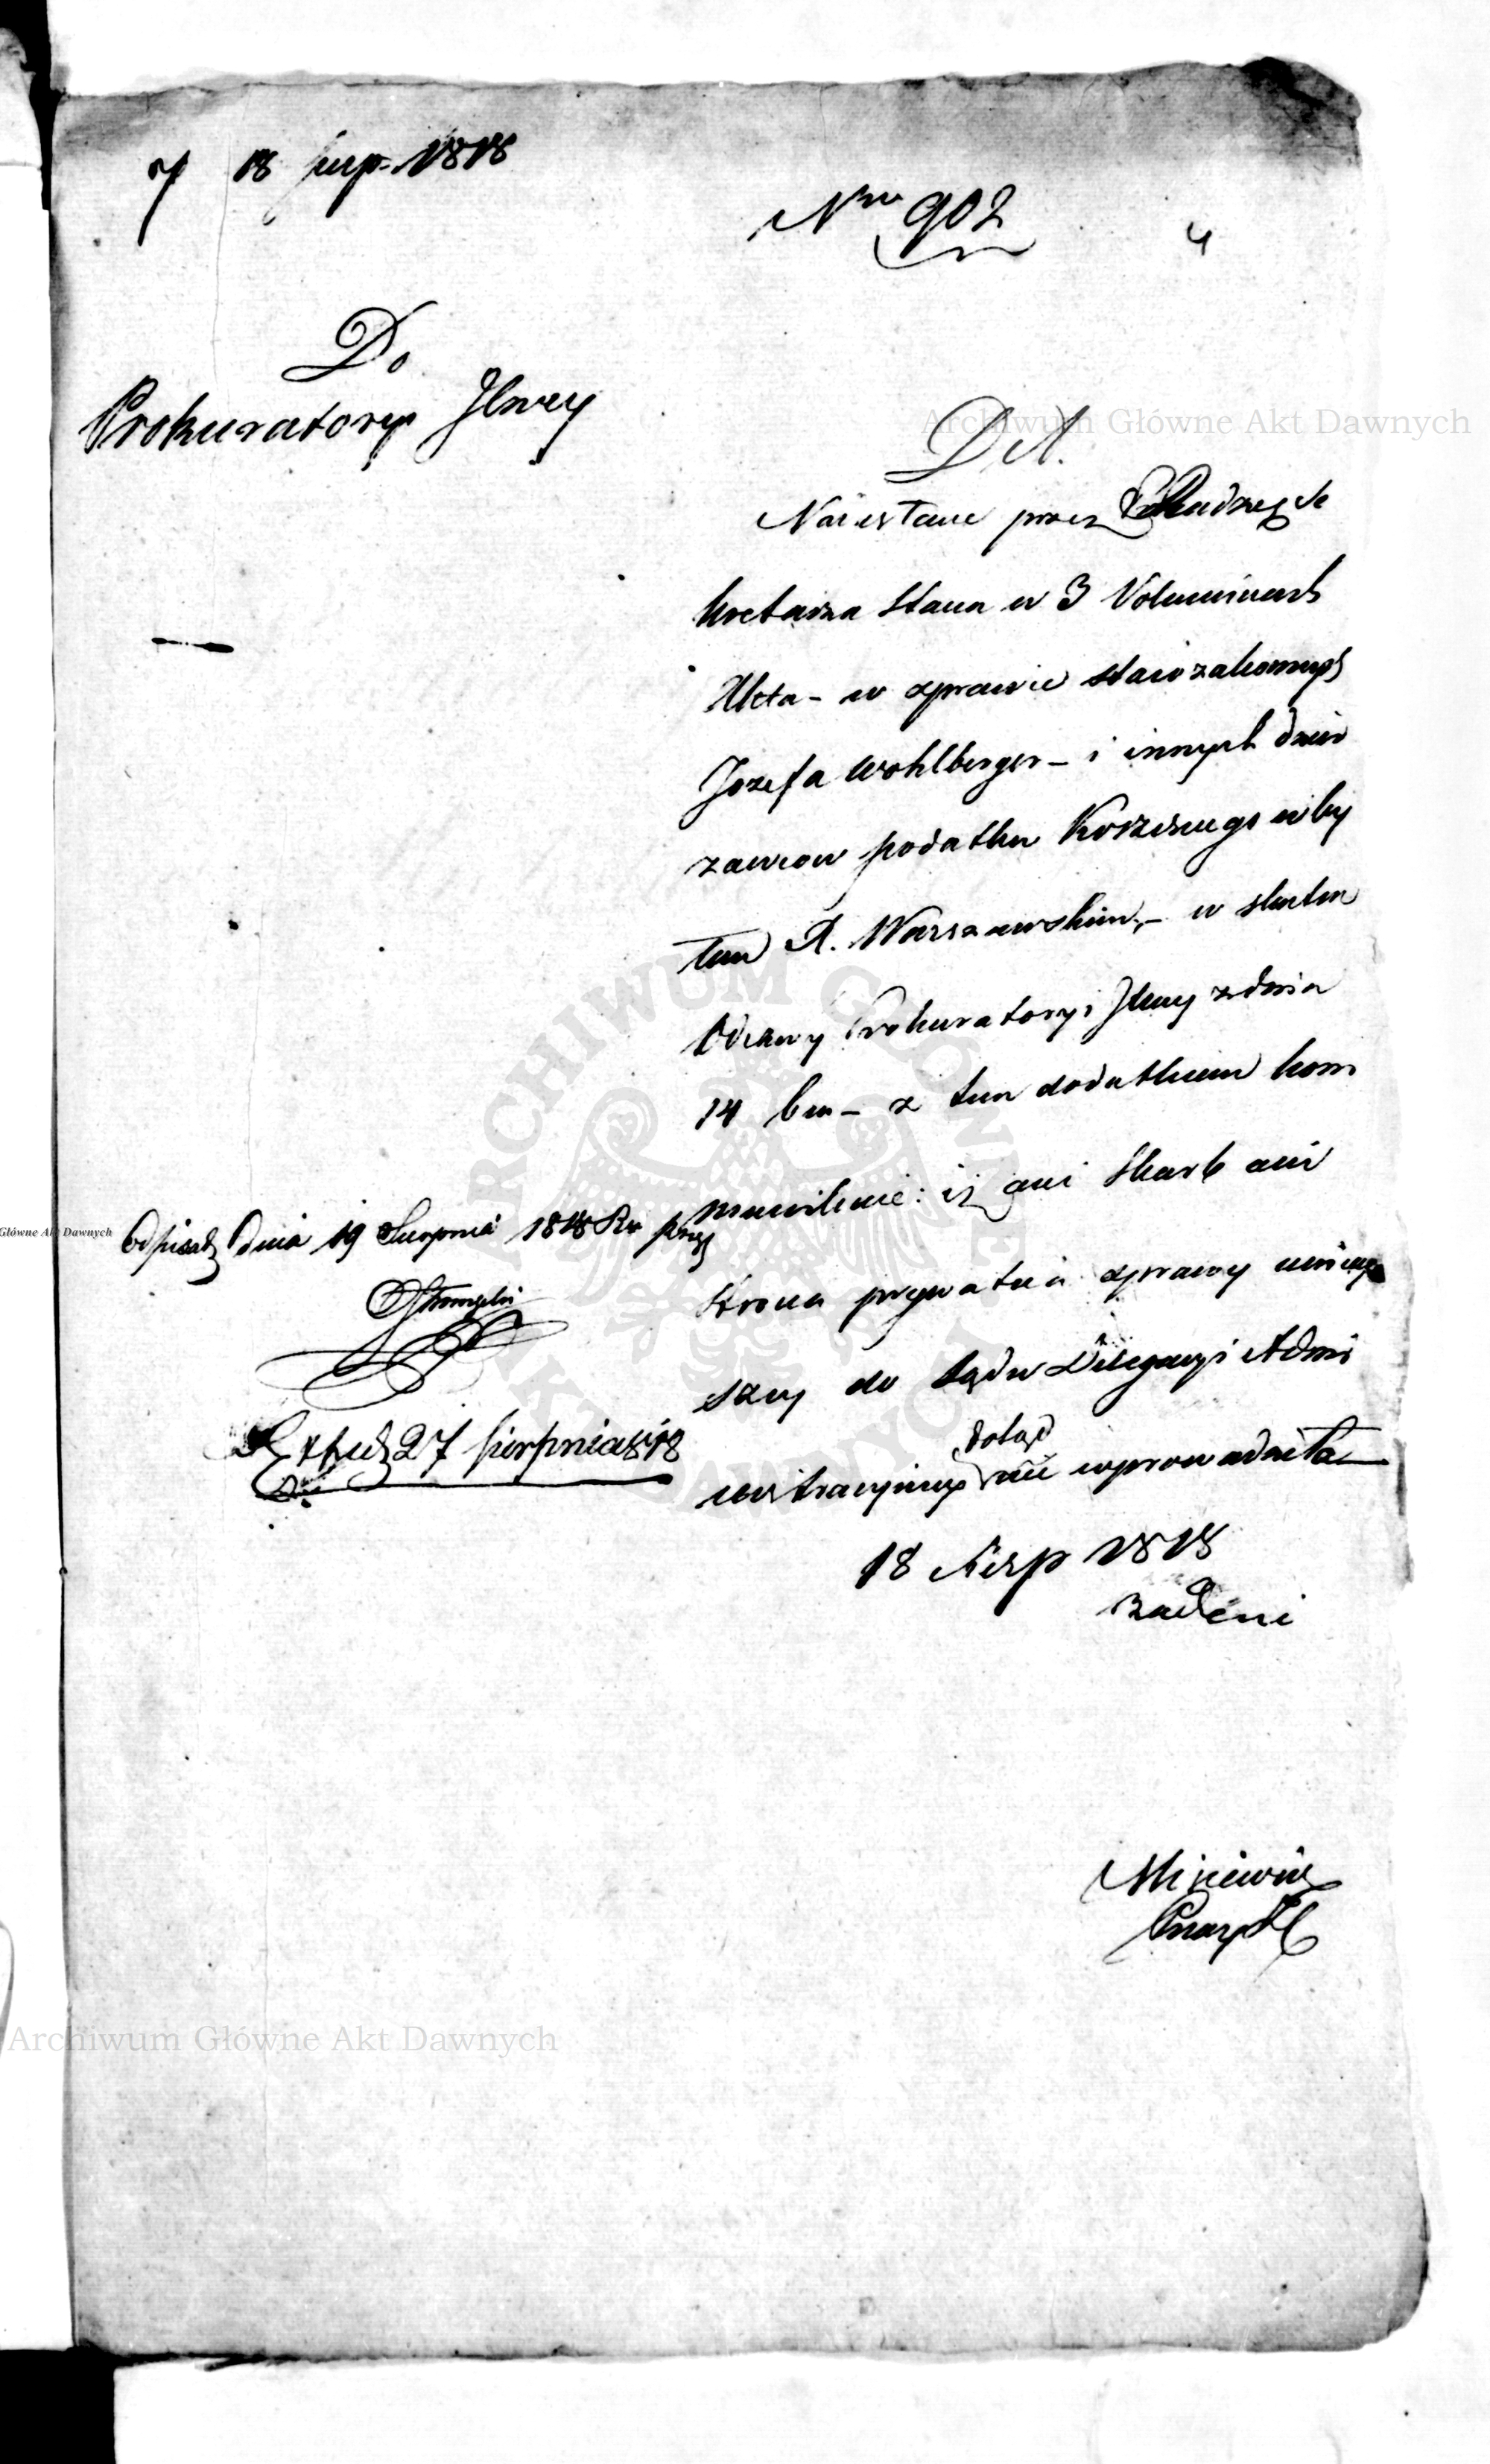 18 sierp. 1818
Nro 902
4
Do
Prokuratoryi Jlney
D. A.
Nadesłane przez Radzcę Se
kretarza Stanu w 3 Voluminach
Akta – w sprawie starozakonnych
Jozefa Wohlberger – i innych dzier
zawcow podatku Koszernego w by
łem X. Warszawskim, – w skutek
Odezwy Prokuratoryi Jlney z dnia
14 bm – z tem dodatkiem kom
munikuie: iż ani Skarb ani
strona prywatna sprawy ninieys
szey do Sądu Delegacyi Admi
nistracyiney dotąd nie wprowadziła
18 Sierp 1818
Odpisał dnia 19 Sierpnia 1818 Ru
Exped 27 sierpnia 1818
Archiwum Główne Akt Dawnych
Główne Akt Dawnych
ARCHIWUM GŁÓWNE AKT DAWNYCH
Archiwum Główne Akt Dawnych